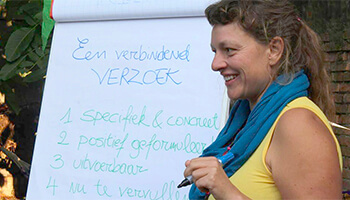 Een verbindend
VERZOEK
1 specifiek & concreet
2 positief geformuleer
3 uitvoerbaar
4 nu te vervulle